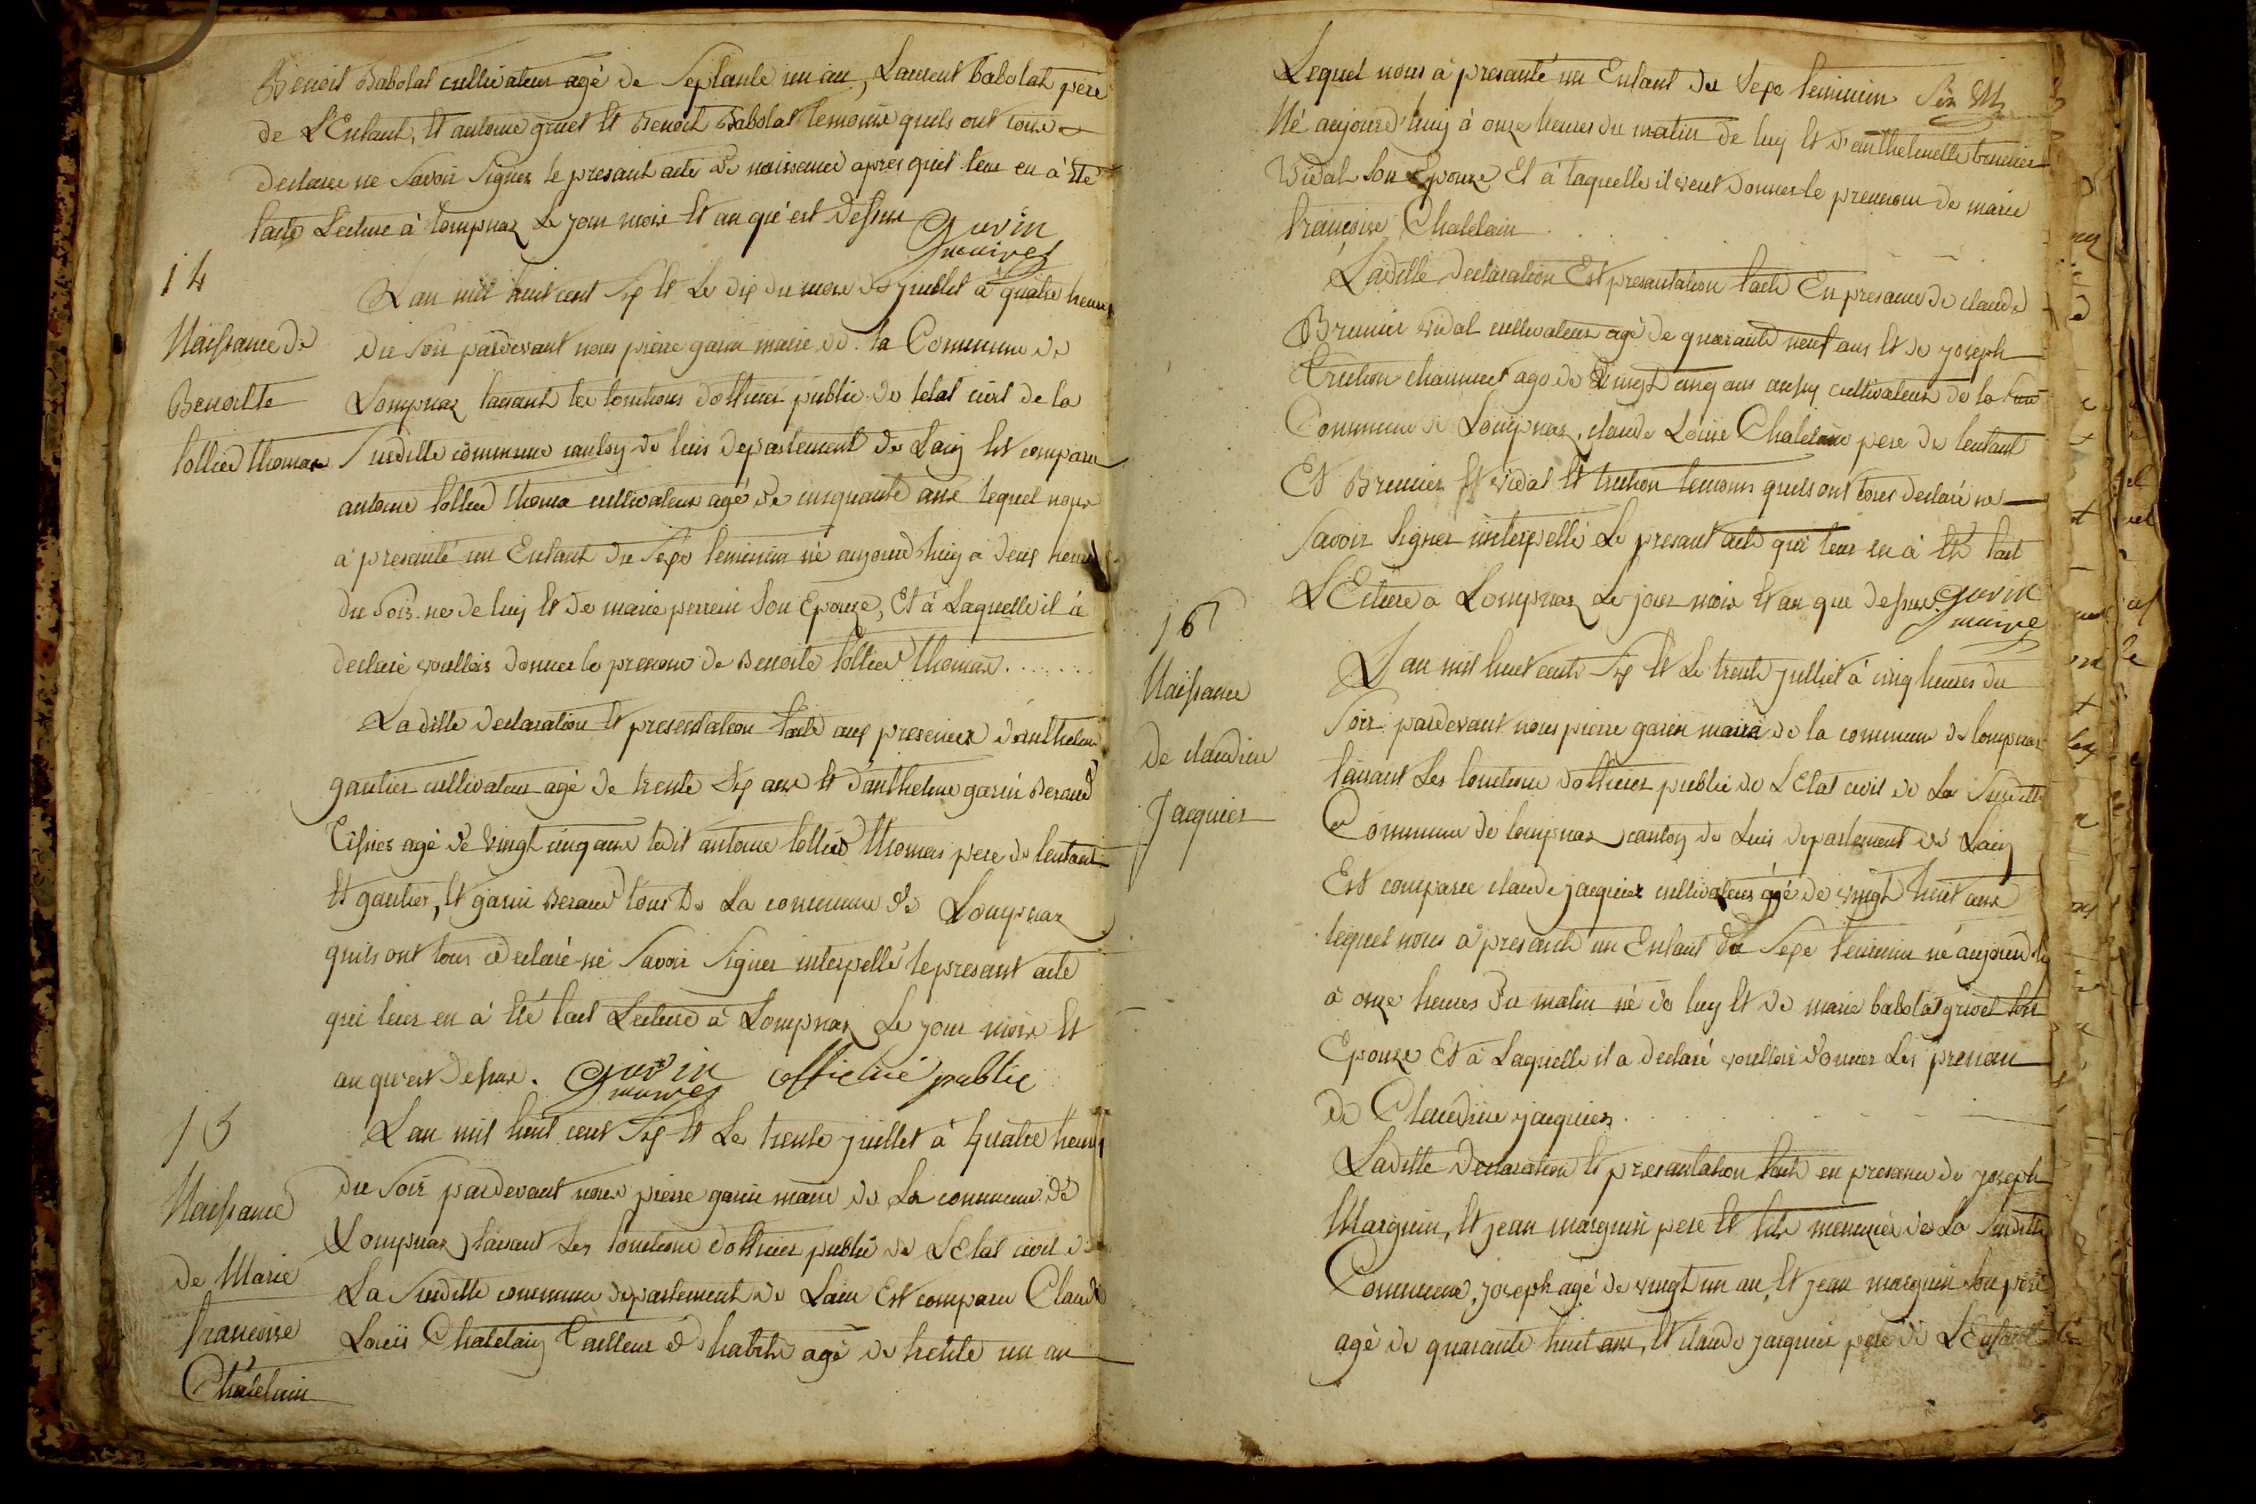 Benoit Babolat cultivateur agé de Septante un an, Laurent babolat pere
de L'Enfant, Et antoine gruet Et Benoit Babolat temoins quils ont tous
declaré ne Savoir Signer le presant acte de naissance apres quil leur en à Eté
faite Lecture à Lompnaz Le jour mois Et an qu'est dessus garin
maire
14
Naissance de
Benoitte
tollied thomas
L'an mil huit cent Six Et Le dix du mois de juillet à quatre heures
du Soir pardevant nous pierre garin maire de la Commune de
Lompnaz faisant les fonctions dofficier public de letat civil de la
Susditte commune canton de luis departement de Lain Est comparu
antoine tollied thomas cultivateur agé de cinquante ans lequel nous
à presanté un Enfant du Sexe feminin né aujourd'huy à deux heures
du Soir né de luy Et de marie perrein Son Epouze, Et à Laquelle il à
declaré voulloir donner le prenom de Benoite tollied thomas . . . . . . .
Laditte declaration Et presentation faite aux presences d'anthelme
gautier cultivateur agé de trente Six ans Et d'anthelme garin Beraud
Tissier agé de vingt cinq ans ledit antoine tollied thomas pere de lenfant
Et gautier, Et garin Beraud tous de La commune de Lompnaz
quils ont tous declaré ne Savoir Signer interpellé le presant acte
qui leur en à Eté fait Lecture à Lompnaz Le jour mois Et
an qu'est dessus. garin officié public
maire
15
Naissance
de Marie
francoise
Chatelain
L'an mil huit cent Six Et Le trente juillet à quatre heures
du Soir pardevant nous pierre garin maire de La commune de
Lompnaz faisant Les fonctions dofficier public de L'Etat civil de
La Susditte commune departement de Lain Est comparu Claude
Louis Chatelain Tailleur d'habits agé de trente un an
Lequel nous à presanté un Enfant du Sexe feminin
Né aujourd'huy à onze heures du matin de luy Et d'anthelmette brunier
Vidal Son Epouze Et à laquelle il veut donner le prennom de marie
francoise Chatelain
Laditte declaration Et presantation faite En presance de claude
Brunier Vidal cultivateur agé de quarante neuf ans Et de joseph
Truchon chaumet agé de vingt cinq ans aussy cultivateur de la
Commune de Lompnaz, claude Louis Chatelain pere de lenfant
Et Brunier Et Vidal Et truchon temoins quils ont tous declaré ne
Savoir Signer interpellé Le presant acte qui leur en à Eté fait
L'Ecture à Lompnaz Le jour mois Et an que dessus garin
maire
16
Naissance
de claudine
Jacquier
L'an mil huit cents Six Et Le trente julliet à cinq heures du
Soir pardevant nous pierre garin maire de la commune de lompnaz
faisant Les fonctions dofficier public de L'Etat civil de La Susditte
Commune de lompnaz canton de Luis departement de Lain
Est comparu claude jacquier cultivateur agé de vingt huit ans
lequel nous à presanté un Enfant du Sexe feminin né aujourd'h
à onze heures du matin né de luy Et de marie babolat grivet Son
Epouze Et à Laquelle il a declaré voulloir donner Les prenom
de Claudine jacquier.
Laditte declaration Et presantation faite en presance de joseph
Marguin, Et jean marguin pere Et fils menuzier de La Susditte
Commune, joseph agé de vingt un an, Et jean marguin Son pere
agé de quarante huit ans, Et claude jacquier pere de L'Enfant